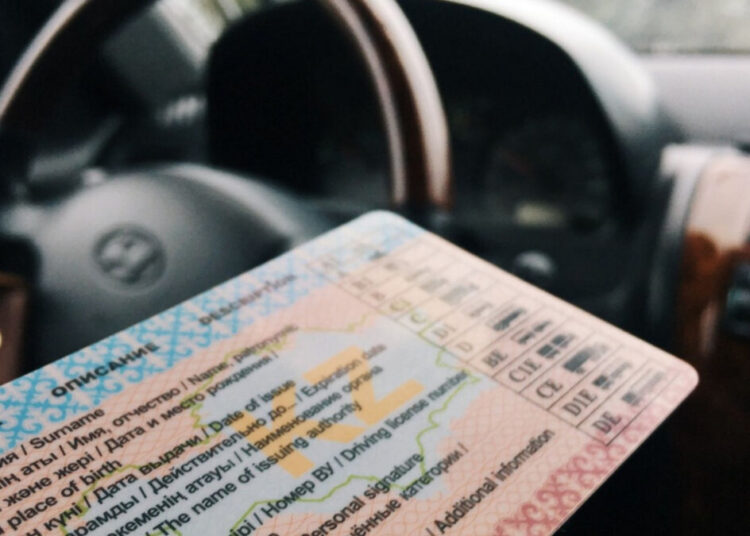 ОПИСАНИЕ DESCRIPTION
/ Surname
аты / Имя, отчество / Name, patronymic
және жері / Дата и место рождения /
place of birth
күні / Дата выдачи / Date of issue
/ Действительно до... / Expiration date
атауы / Наименование органа
/ The name of issuing authority
/ Номер ВУ / Driving license number
Personal signature
категории /
/ Additional information
KZ
BE
C1E
CE
D1E
DE